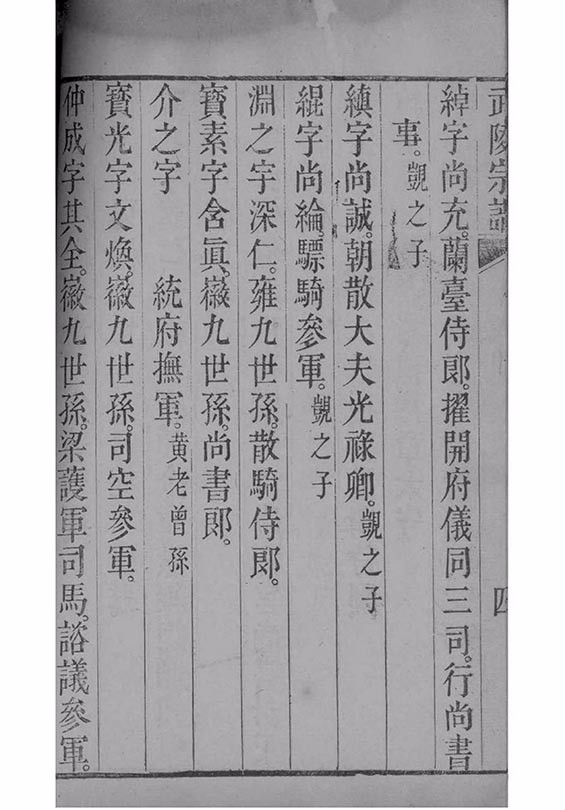 武陵宗譜
四
綽字尚充。蘭臺侍郎。擢開府儀同三司。行尚書
事。覬之子
縝字尚誠。朝散大夫光祿卿。覬之子
緄字尚綸。驃騎參軍。覬之子
淵之字深仁。雍九世孫。散騎侍郎。
寳素字含眞。徽九世孫。尚書郎。
介之字　統府撫軍。黄老曾孫
寳光字文煥。徽九世孫。司空參軍。
仲成字其全。徽九世孫。梁護軍司馬。諮議參軍。